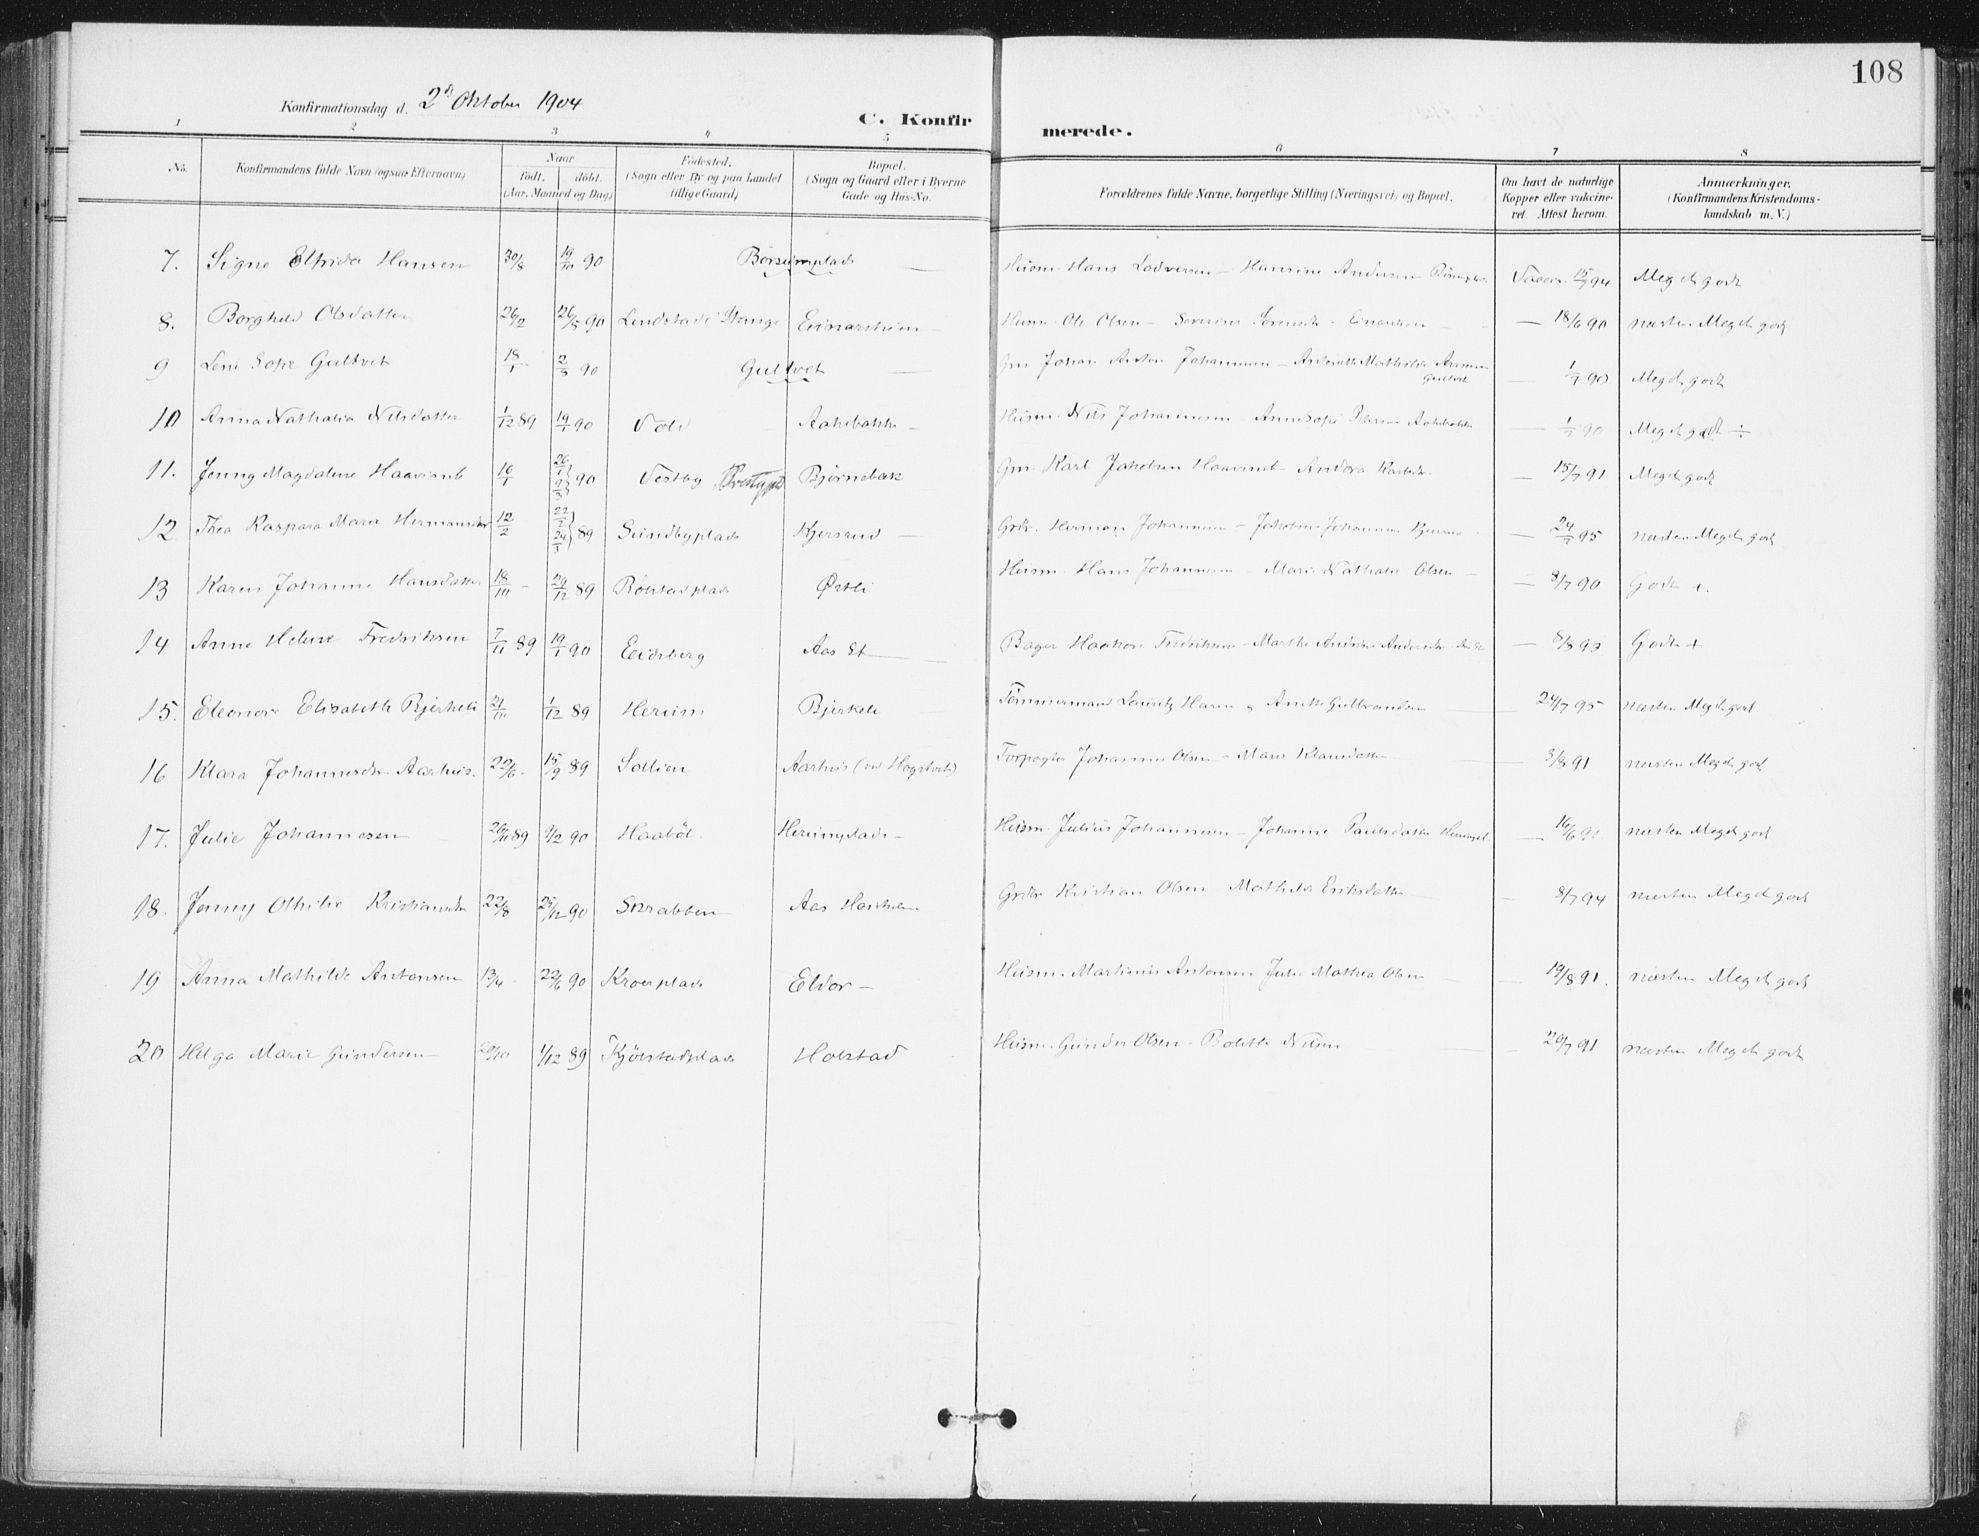 108
Konfirmationsdag d. 2den Oktober 1904
C. Konfirmerede.
1 2 3 4 5 6 7 8
No. Konfirmandens fulde Navn (ogsaa Efternavn) Naar födt. döbt. (Aar, Maaned og Dag) Födested. (Sogn eller By og paa Landet tillige Gaard) Bopæl. (Sogn og Gaard eller i Byerne Gade og Hus-No. Forældrenes fulde Navne, borgerlige Stilling (Næringsvei) og Bopæl. Om havt de naturlige Kopper eller vakcineret. Attest herom. Anmærkninger. (Konfirmandens Kristendomskundskab m. V.)
7. Signe Elfrida Hansen 30/8 19/10 90 Børsumplads — Husm. Hans Lodversen — Hansine Andersen Vaccin. 15/7 94 Meget godt
8. Borghild Olsdatter 26/2 26/5 90 Lindstad i Stange Einarsheim — Husm. Ole Olsen — Severine — 18/6 90 næsten Meget godt
9 Lene Sofie Gultvet 18/1 2/3 90 Gultvet — Gm. Johan Anton Johannesen — Gultvet — 1/7 90 Meget godt
10 Anna Nathalia Nilsdatter 1/12 89 19/1 90 Vold Aakebakke — Husm. Nils Johannesen — Anne Sofie Aakebakke — 1/7 90 Meget godt ÷
11. Jenny Magdalene Haavimb 16/1 26/1 9/3 } 90 Vestby Bjørnebæk Gm. Karl Jakobsen Haavimb — Andora Karlsdr. — 15/7 91 Meget godt
12 Thea Kaspara Marie Hermansdtr 12/2 22/2 24/3 } 89 Sundbyplads Kjersrud — Grdbr. Herman Johannesen — — 24/7 95 næsten Meget godt
13 Karen Johanne Hansdatter 18/10 – 29/12 89 Rölstadplads Østli Husm. Hans Johannesen — Marie Nathalie Olsen — — 8/7 90 Godt +.
14 Anne Helene Fredriksen 7/11 89 19/1 90 Eidsberg Aas St — Bager Haakon Fredriksen — Marthe Andrine — 8/8 93 Godt +
15. Eleonore Elisabeth Bjerkeli 21/10 1/12 89 Herum Bjerkeli Tömmermand Lauritz — 24/7 95 næsten Meget godt
16 Klara Johannesdr. Aarhus. 22/6 – 15/9 89 Sollien Aarhus (ved Hogstvedt) Forpagter Johannes Olsen — Maria Klausdatter 3/8 91 næsten Meget godt
17. Julie Johannesen 26/11 89 9/2 90 Haaböl Herumplads — Husm. Julius Johannesen — Johanne Paulsdatter — 16/6 næsten Meget godt
18. Jenny Othilie Kristiansdtr 22/8 25/12 90 Skrabben Aas Grdbr Kristian Olsen Mathilde Eriksdatter — 8/7 94 næsten Meget godt
19 Anna Mathilde Antonsen 13/4 – 22/6 90 Kroerplads Eldor — Husm. Martinius Antonsen Julie Mathea Olsen — 19/8 91. næsten Meget godt
20 Helga Marie Gundersen 20/10 1/12 89 Kjölstadplads Holstad Husm. Gunder Olsen — Bolette Nilsen — 20/7 91 næsten Meget godt